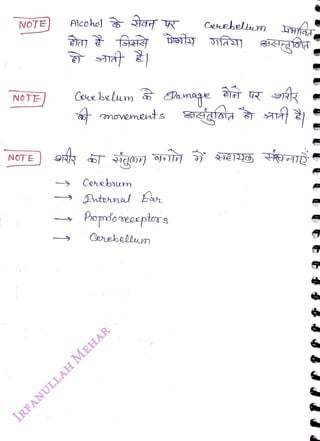 NOTE Alcohol के सेवन पर Cerebellum प्रभावित
होता है जिससे पेशीय गतियां असन्तुलित
हो जाती है।
NOTE Cerebelum के Damage होने पर शरीर
की movements असंतुलित हो जाती है।
NOTE शरीर का संतुलन बनाने में सहायक संरचनाएँ
→ Cerebrum
→ Internal Ear
→ Proprioreceptors
→ Cerebellum
IRFANULLAH MEHAR